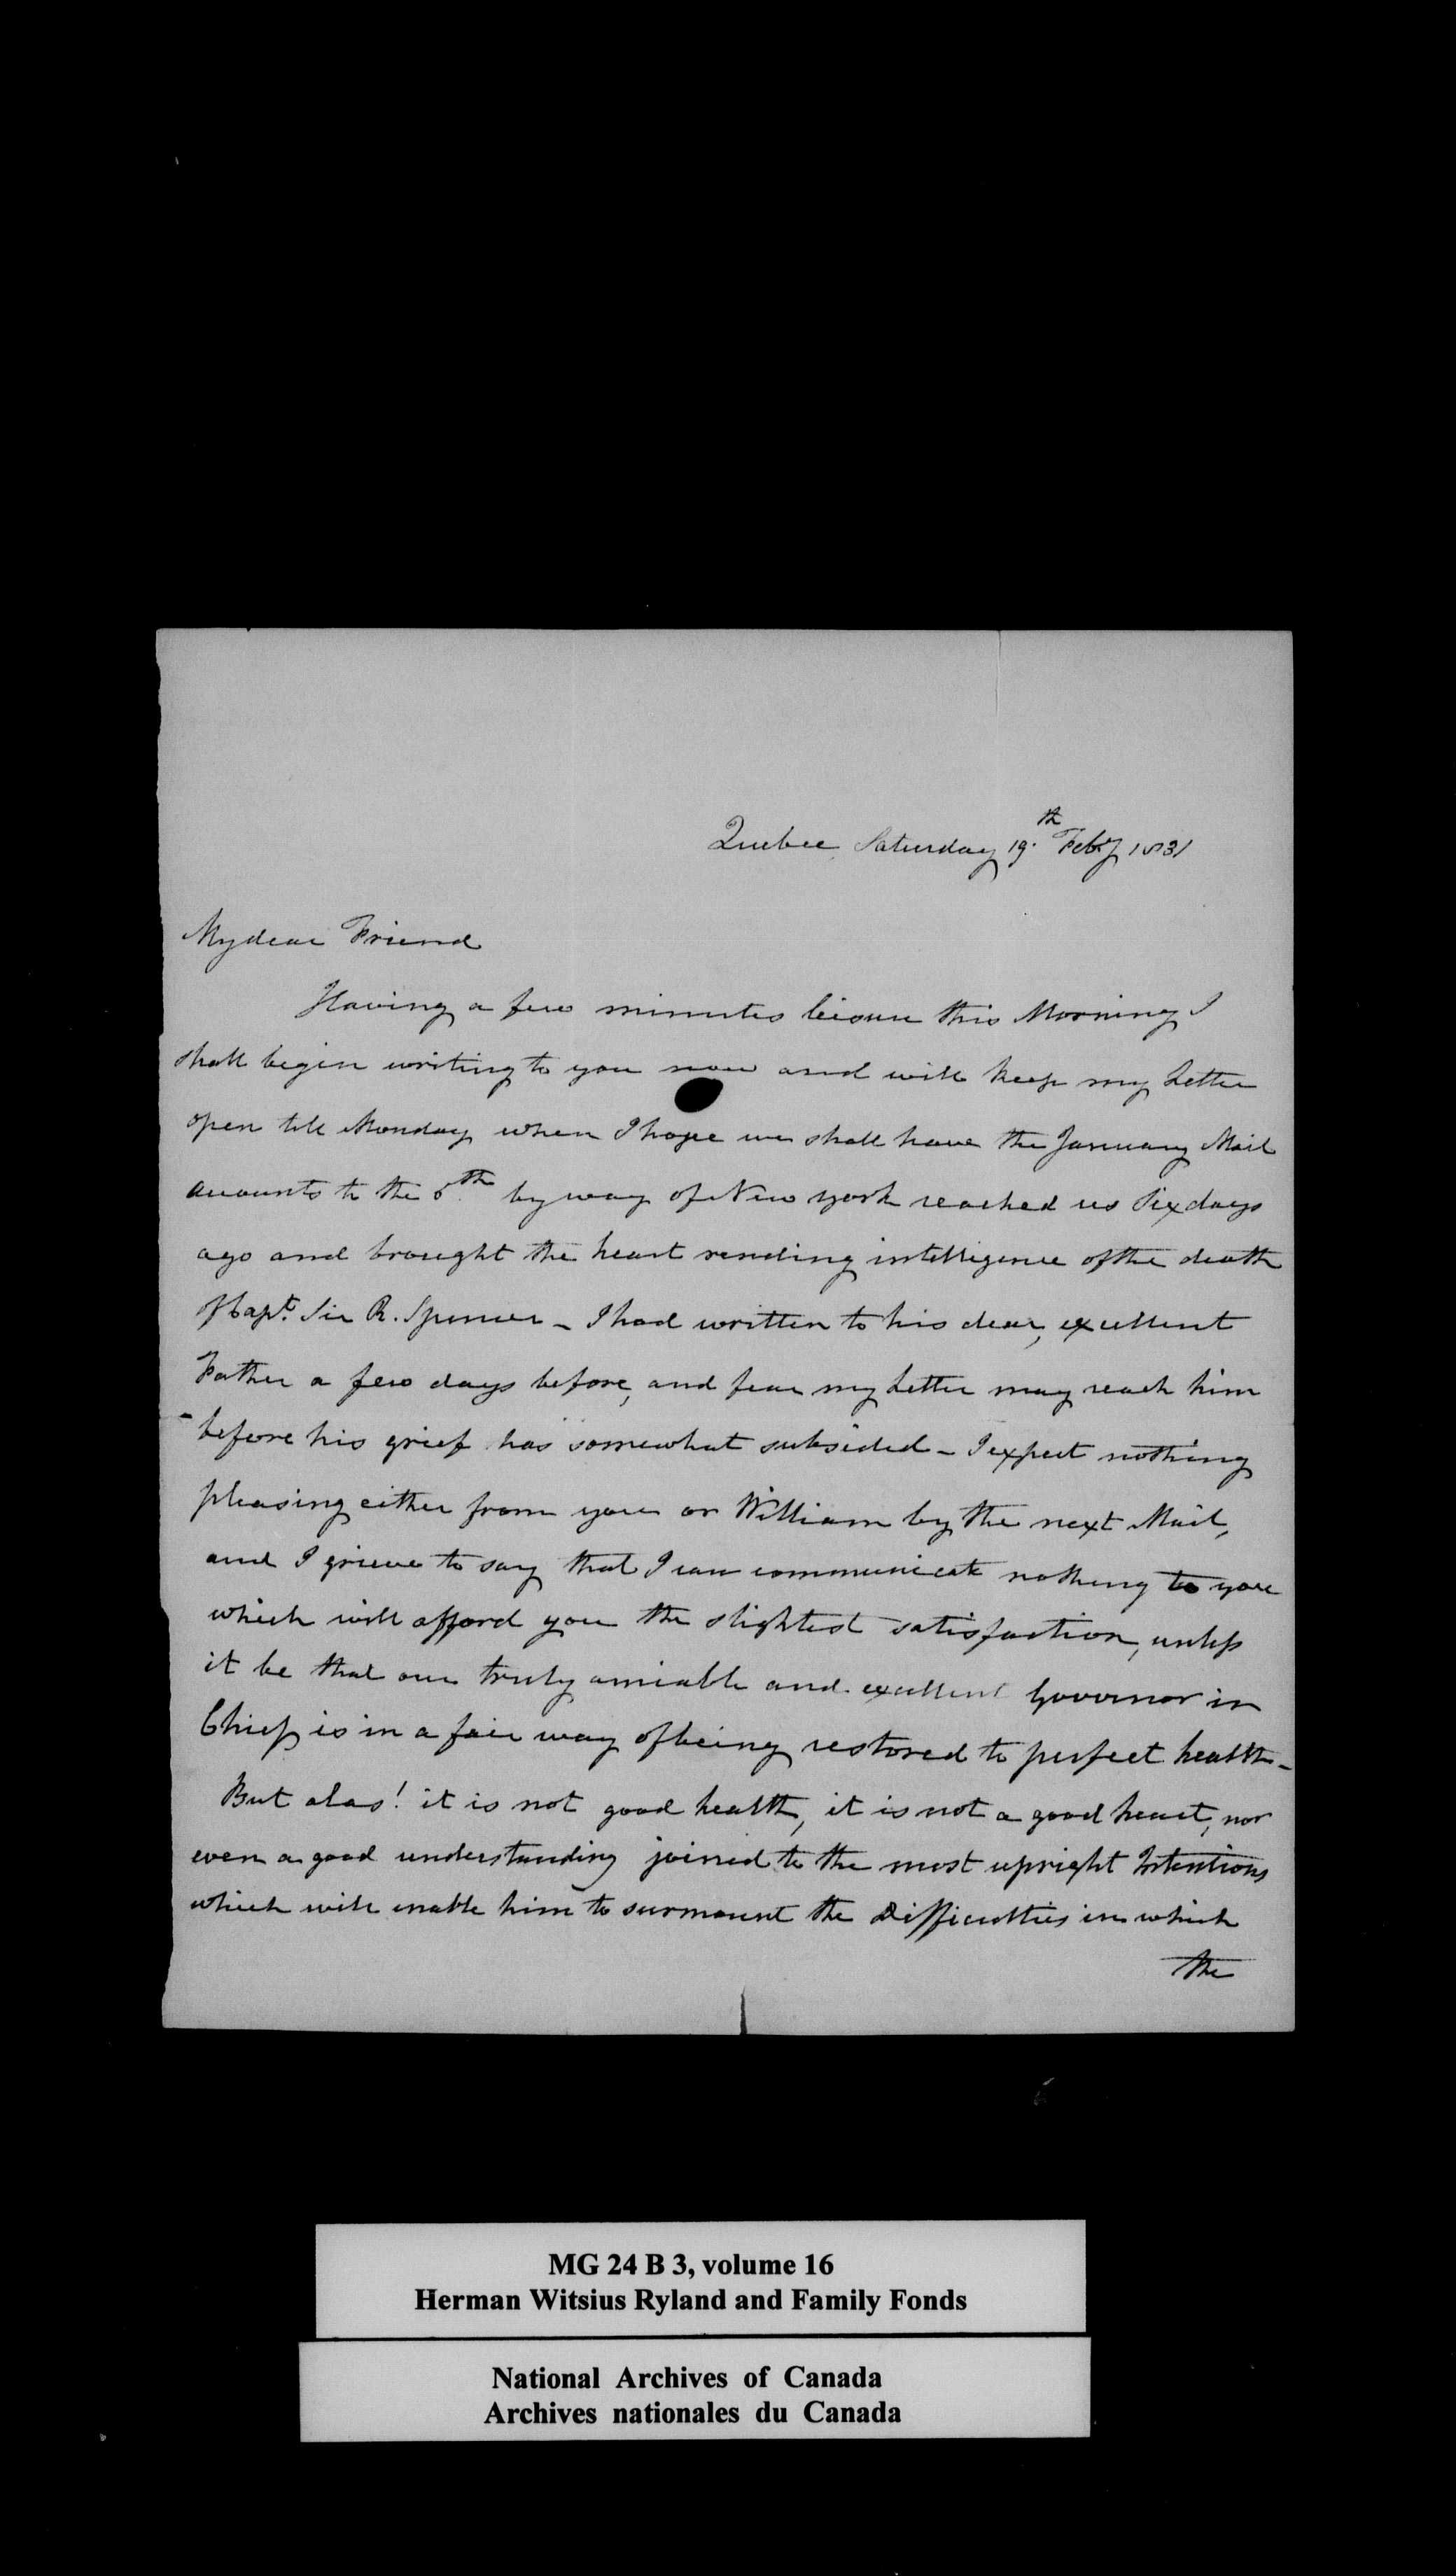 Quebec, Saturday 19.th Feby 1831
My dear Friend
Having a few minutes leisure this Morning I
shall begin writing to you now and will keep my Letter
open till Monday when I hope we shall have the January Mail
accounts to the 6th by way of New York reached us Six days
ago and brought the heart rending intelligence of the death
of Capt. Sir R. Spencer – I had written to his dear, excellent
Father a few days before, and fear my Letter may reach him
before his grief has somewhat subsided – I expect nothing
pleasing either from you or William by the next Mail,
and I grieve to say that I can communicate nothing to you
which will afford you the slightest satisfaction, unless
it be that our truly amiable and excellent Governor in
Chief is in a fair way of being restored to perfect health –
But alas! it is not good health, it is not a good heart, nor
even a good understanding joined to the most upright Intentions
which will enable him to surmount the Difficulties in which
the
MG 24 B 3, volume 16
Herman Witsius Ryland and Family Fonds
National Archives of Canada
Archives nationales du Canada